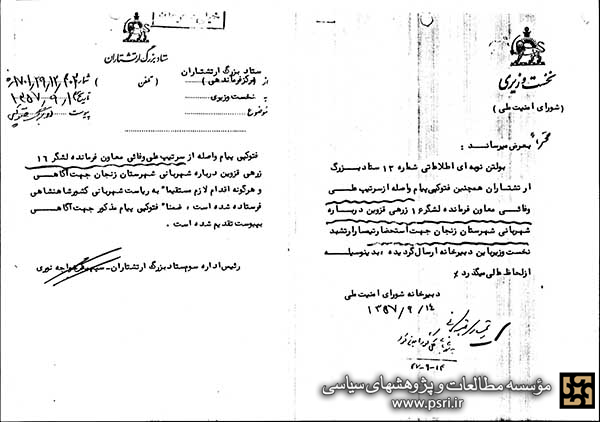 نخست وزیری
(شورای امنیت ملی)
محترماً
بعرض میرساند :
بولتن نوبه ای اطلاعاتی شماره ۱۲ ستاد بزرگ
ارتشتاران همچنین فتوکپی پیام واصله از سرتیپ علی
وفائی معاون فرمانده لشگر ۱۶ زرهی قزوین درباره
شهربانی شهرستان زنجان جهت استحضار تیمسار ارتشبد
نخست وزیر باین دبیرخانه ارسال گردیده ، بدینوسیله
از لحاظ عالی میگذرد
دبیرخانه شورای امنیت ملی
۱۳۵۷/۹/۱۴
ستاد بزرگ ارتشتاران
از
ستاد بزرگ ارتشتاران
(مرکز فرماندهی)
(تلفن )
شماره
به نخست وزیری
تاریخ
موضوع
پیوست
فتوکپی پیام واصله از سرتیپ علی وفائی معاون فرمانده لشگر ۱۶
زرهی قزوین درباره شهربانی شهرستان زنجان جهت آگاهی
و هرگونه اقدام لازم مستقیماً به ریاست شهربانی کشور شاهنشاهی
فرستاده شده است ، ضمناً فتوکپی پیام مذکور جهت آگاهی
بپیوست تقدیم شده است .
رئیس اداره سوم ستاد بزرگ ارتشتاران - سپهبد خواجه نوری
مؤسسه مطالعات و پژوهشهای سیاسی
www.psri.ir